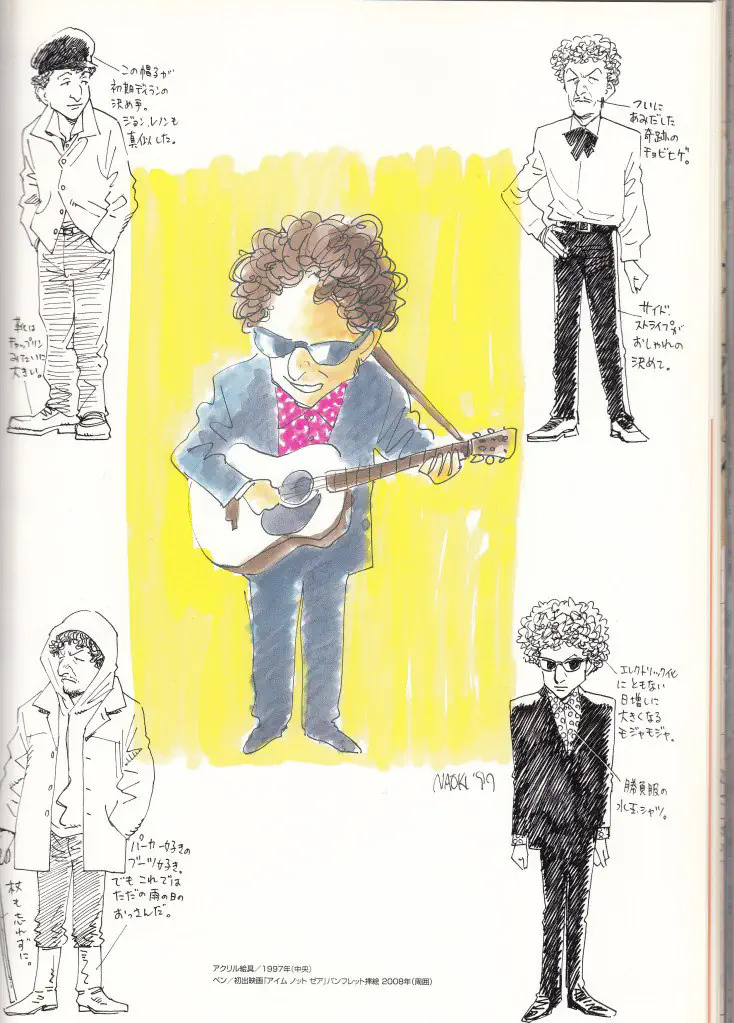 この帽子が
初期ディランの
決め手。
ジョン・レノンも
真似した。
ついに
あみだした
奇跡の
チョビヒゲ。
靴は
チャップリン
みたいに
大きい。
サイド
ストライプが
おしゃれの
決めて。
エレクトリック化
にともない
日増しに
大きくなる
モジャモジャ。
NAOKI '97
勝負服の
水玉シャツ。
パーカー好きの
ブーツ好き。
でもこれでは
ただの雨の日の
おっさんだ。
杖も忘れずに。
アクリル絵具／1997年（中央）
ペン／初出映画「アイム ノット ゼア」パンフレット挿絵 2008年（周囲）